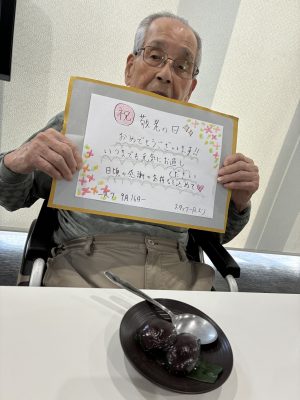 祝 敬老の日
おめでとうございます!!
いつまでも元気にお過し
ください
日頃の感謝のお持ちこめて
9月16日
スタッフ一同より